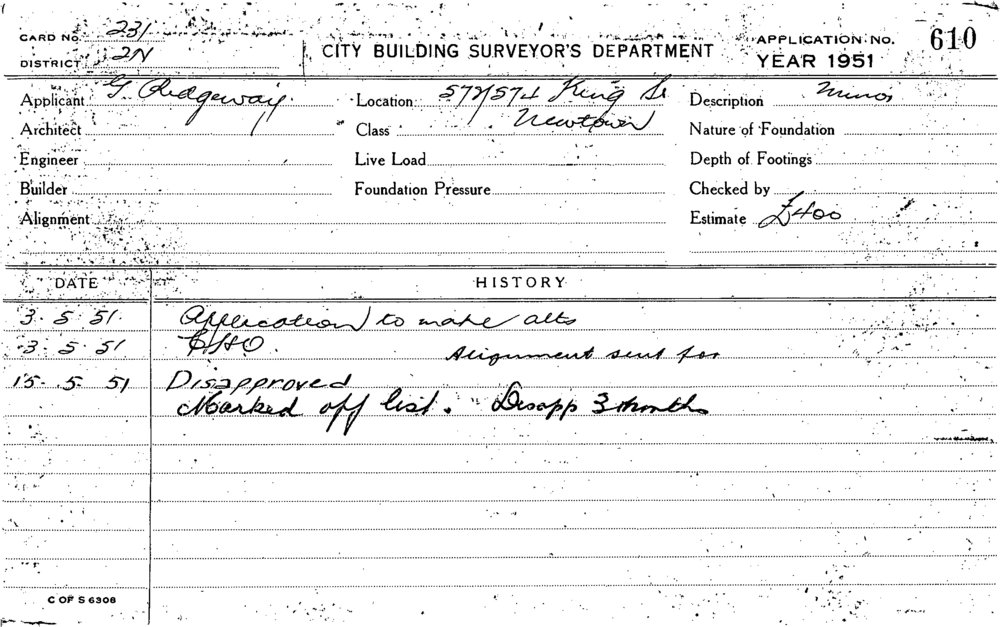 CARD No. 231
DISTRICT 2N
CITY BUILDING SURVEYOR'S DEPARTMENT
APPLICATION No. 610
YEAR 1951
Applicant G. Ridgeway Location 572/574 King St Description Minor
Architect Class Newtown Nature of Foundation
Engineer Live Load Depth of Footings
Builder Foundation Pressure Checked by
Alignment Estimate £400
DATE HISTORY
3. 5. 51 Application to make alts
3. 5. 51 CHO. Alignment sent for
15. 5. 51 Disapproved
Marked off list. Disapp 3 months
C OF S 6306